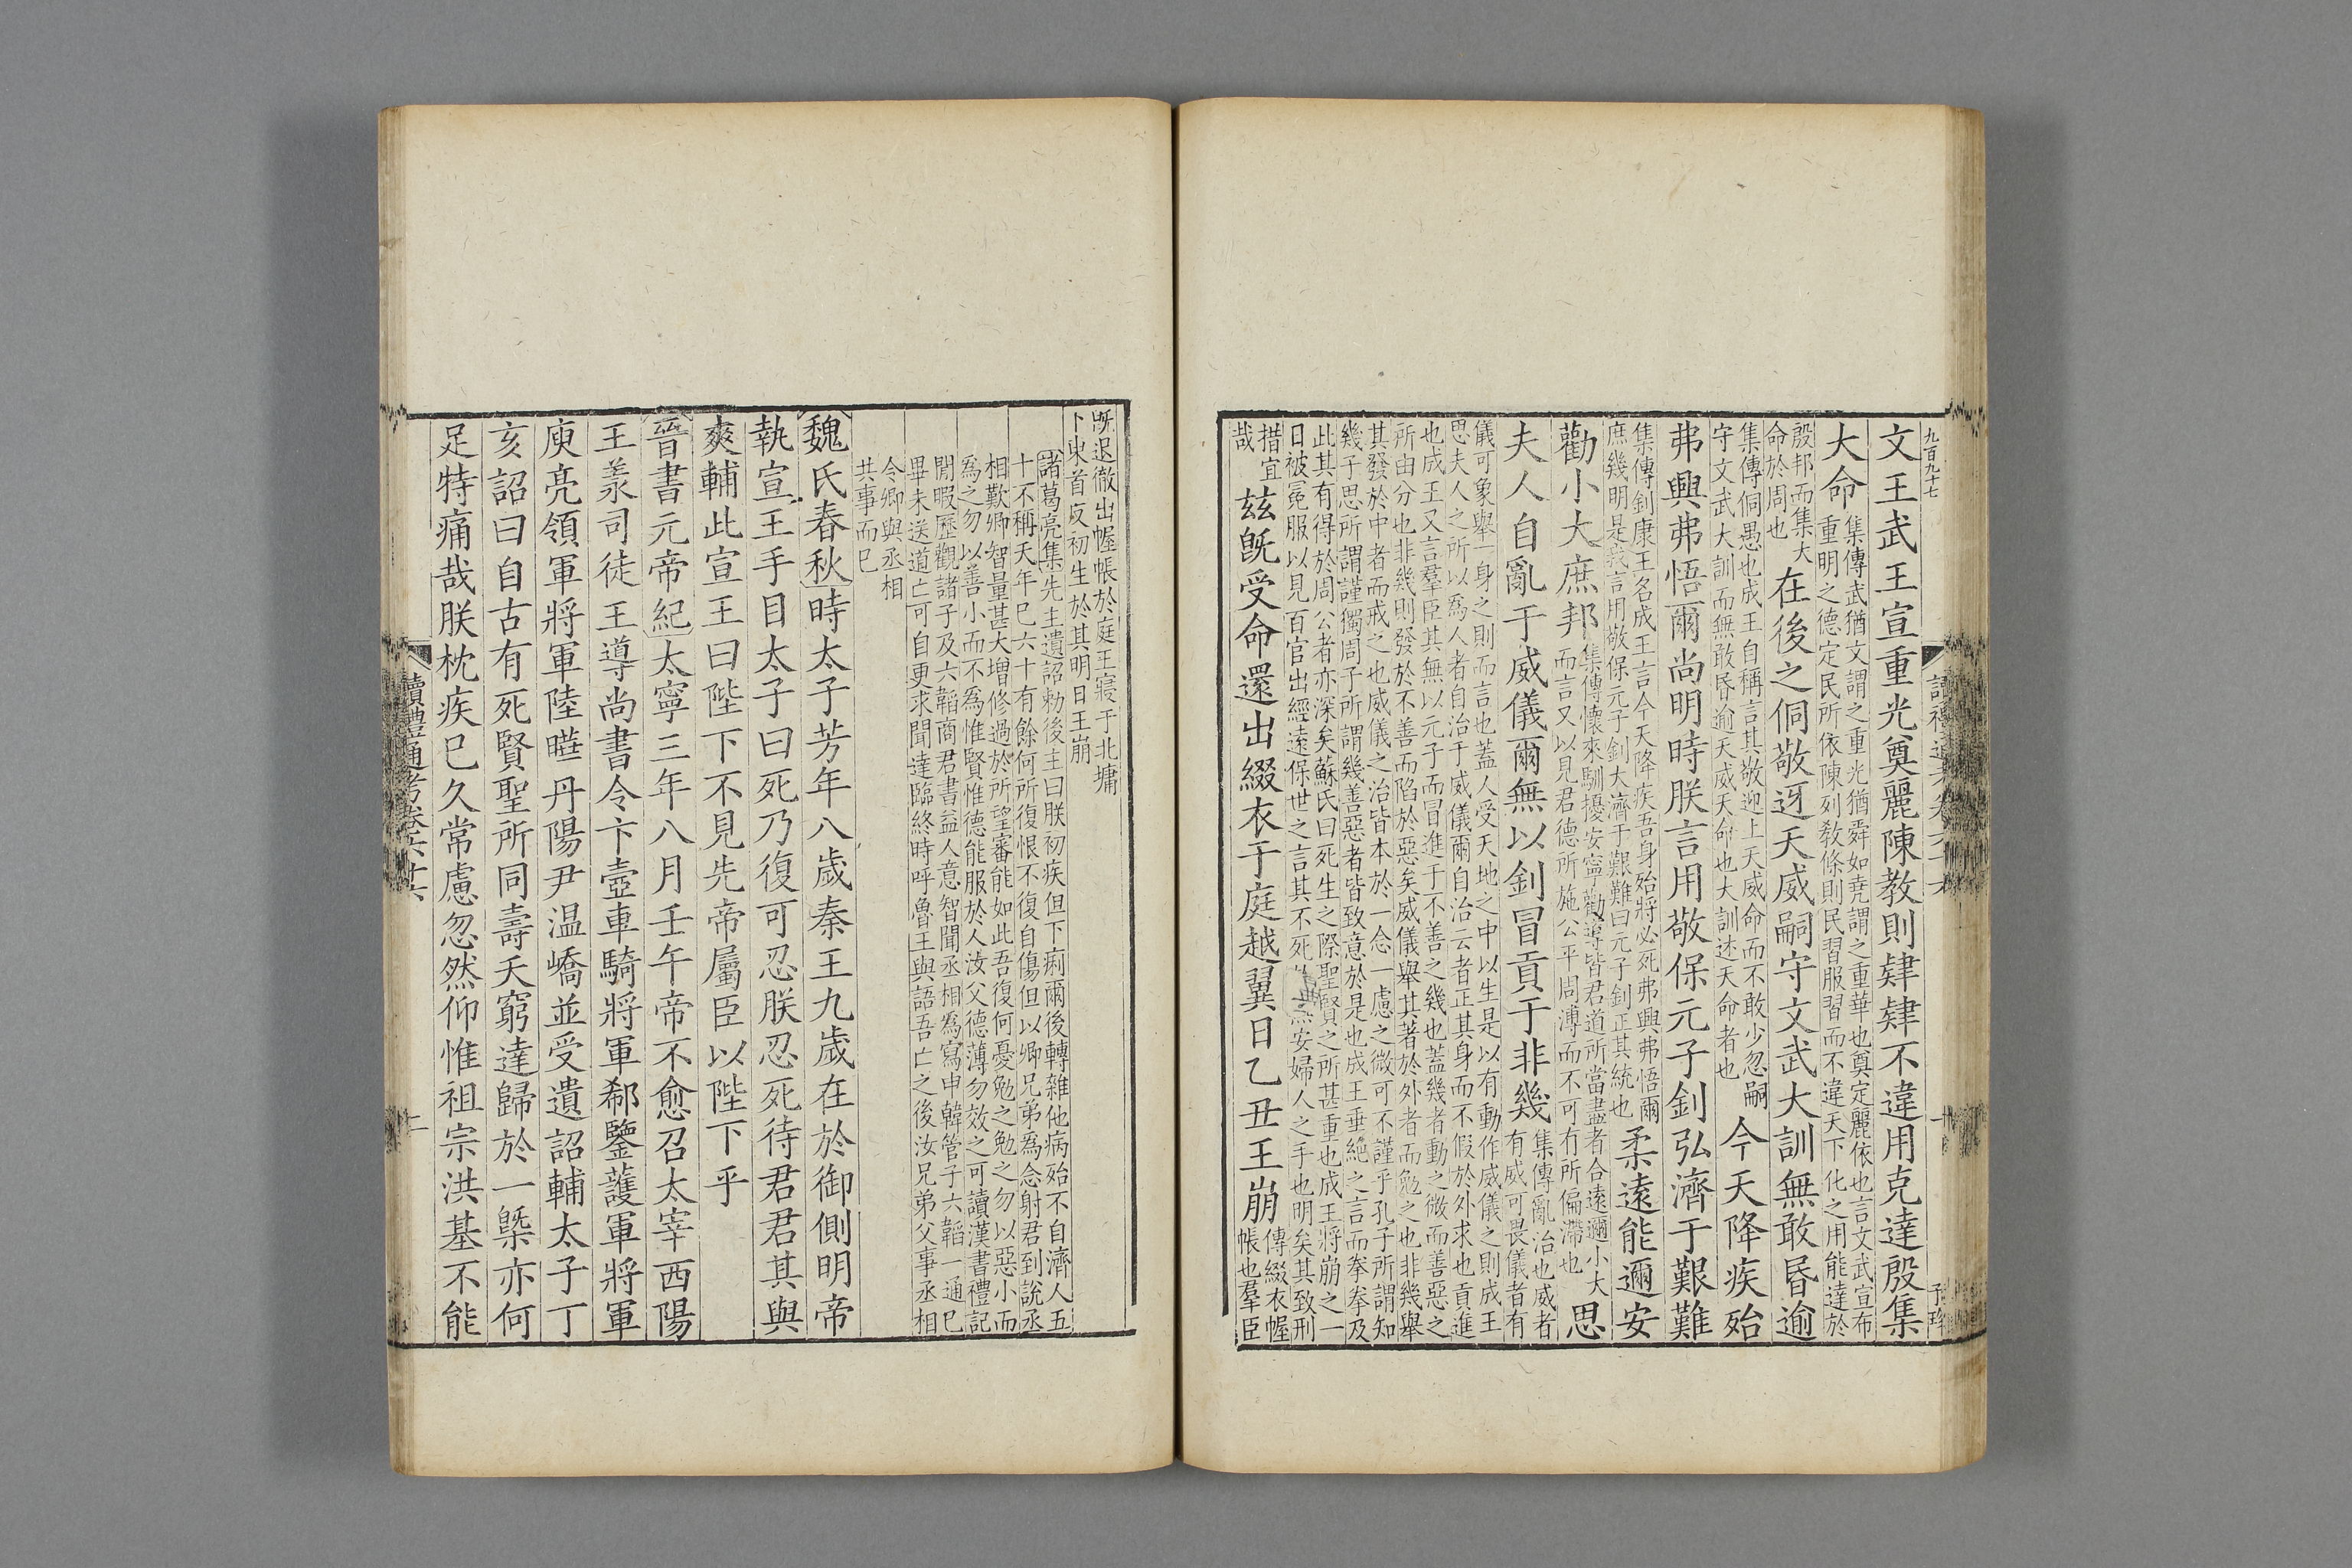 九百九十七
文王武王宣重光奠麗陳教則肄肄不違用克達殷集
大命
集傳武猶文謂之重光猶舜如堯謂之重華也奠定麗依也言文武宣布
重明之德定民所依陳列敎條則民習服習而不違天下化之用能達於
殷邦而集大
命於周也
在後之侗敬迓天威嗣守文武大訓無敢昏逾
集傳侗愚也成王自稱言其敬迎上天威命而不敢少忽嗣
守文武大訓而無敢昏逾天威天命也大訓述天命者也
今天降疾殆
弗興弗悟爾尚明時朕言用敬保元子釗弘濟于艱難
集傳釗康王名成王言今天降疾吾身殆將必死弗興弗悟爾
庶幾明是我言用敬保元子釗大濟于艱難曰元子釗正其統也
柔遠能邇安
勸小大庶邦
集傳懷來馴擾安寧勸導皆君道所當盡者合遠邇小大
而言又以見君德所施公平周溥而不可有所偏滯也
思
夫人自亂于威儀爾無以釗冒貢于非幾
集傳亂治也威者
有威可畏儀者有
儀可象舉一身之則而言也蓋人受天地之中以生是以有動作威儀之則成王
思夫人之所以爲人者自治于威儀爾自治云者正其身而不假於外求也貢進
也成王又言羣臣其無以元子而冒進于不善之幾也蓋幾者動之微而善惡之
所由分也非幾則發於不善而陷於惡矣威儀舉其著於外者而勉之也非幾舉
其發於中者而戒之也威儀之治皆本於一念一慮之微可不謹乎孔子所謂知
幾子思所謂謹獨周子所謂幾善惡者皆致意於是也成王垂絕之言而拳拳及
此其有得於周公者亦深矣蘇氏曰死生之際聖賢之所甚重也成王將崩之一
日被冕服以見百官出經遠保世之言其不死安婦人之手也明矣其致刑
措宜
哉
兹旣受命還出綴衣于庭越翼日乙丑王崩
傳綴衣幄
帳也羣臣
旣退徹出幄帳於庭王寢于北墉
卜東首反初生於其明日王崩
諸葛亮集先主遺詔勑後主曰朕初疾但下痢爾後轉雜他病殆不自濟人五
十不稱夭年巳六十有餘何所復恨不復自傷但以卿兄弟爲念射君到說丞
相歎卿智量甚大增修過於所望審能如此吾復何憂勉之勉之勿以惡小而
爲之勿以善小而不爲惟賢惟德能服於人汝父德薄勿效之可讀漢書禮記
閒暇歷觀諸子及六韜商君書益人意智聞丞相爲寫申韓管子六韜一通巳
畢未送道亡可自更求聞達臨終時呼魯王與語吾亡之後汝兄弟父事丞相
令卿與丞相
共事而巳
魏氏春秋時太子芳年八歲秦王九歲在於御側明帝
執宣王手目太子曰死乃復可忍朕忍死待君君其與
爽輔此宣王曰陛下不見先帝屬臣以陛下乎
晉書元帝紀太寧三年八月壬午帝不愈召太宰西陽
王羕司徒王導尚書令卞壼車騎將軍郗鑒護軍將軍
庾亮領軍將軍陸曄丹陽尹温嶠並受遺詔輔太子丁
亥詔曰自古有死賢聖所同壽夭窮達歸於一槩亦何
足特痛哉朕枕疾巳久常慮忽然仰惟祖宗洪基不能
讀禮通考卷六十六